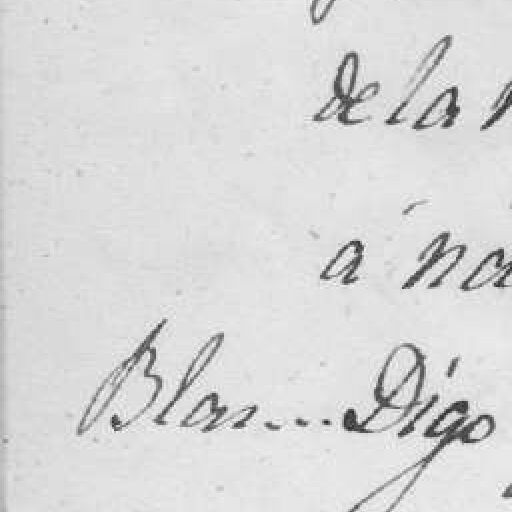 de la
á
Blas... Digo